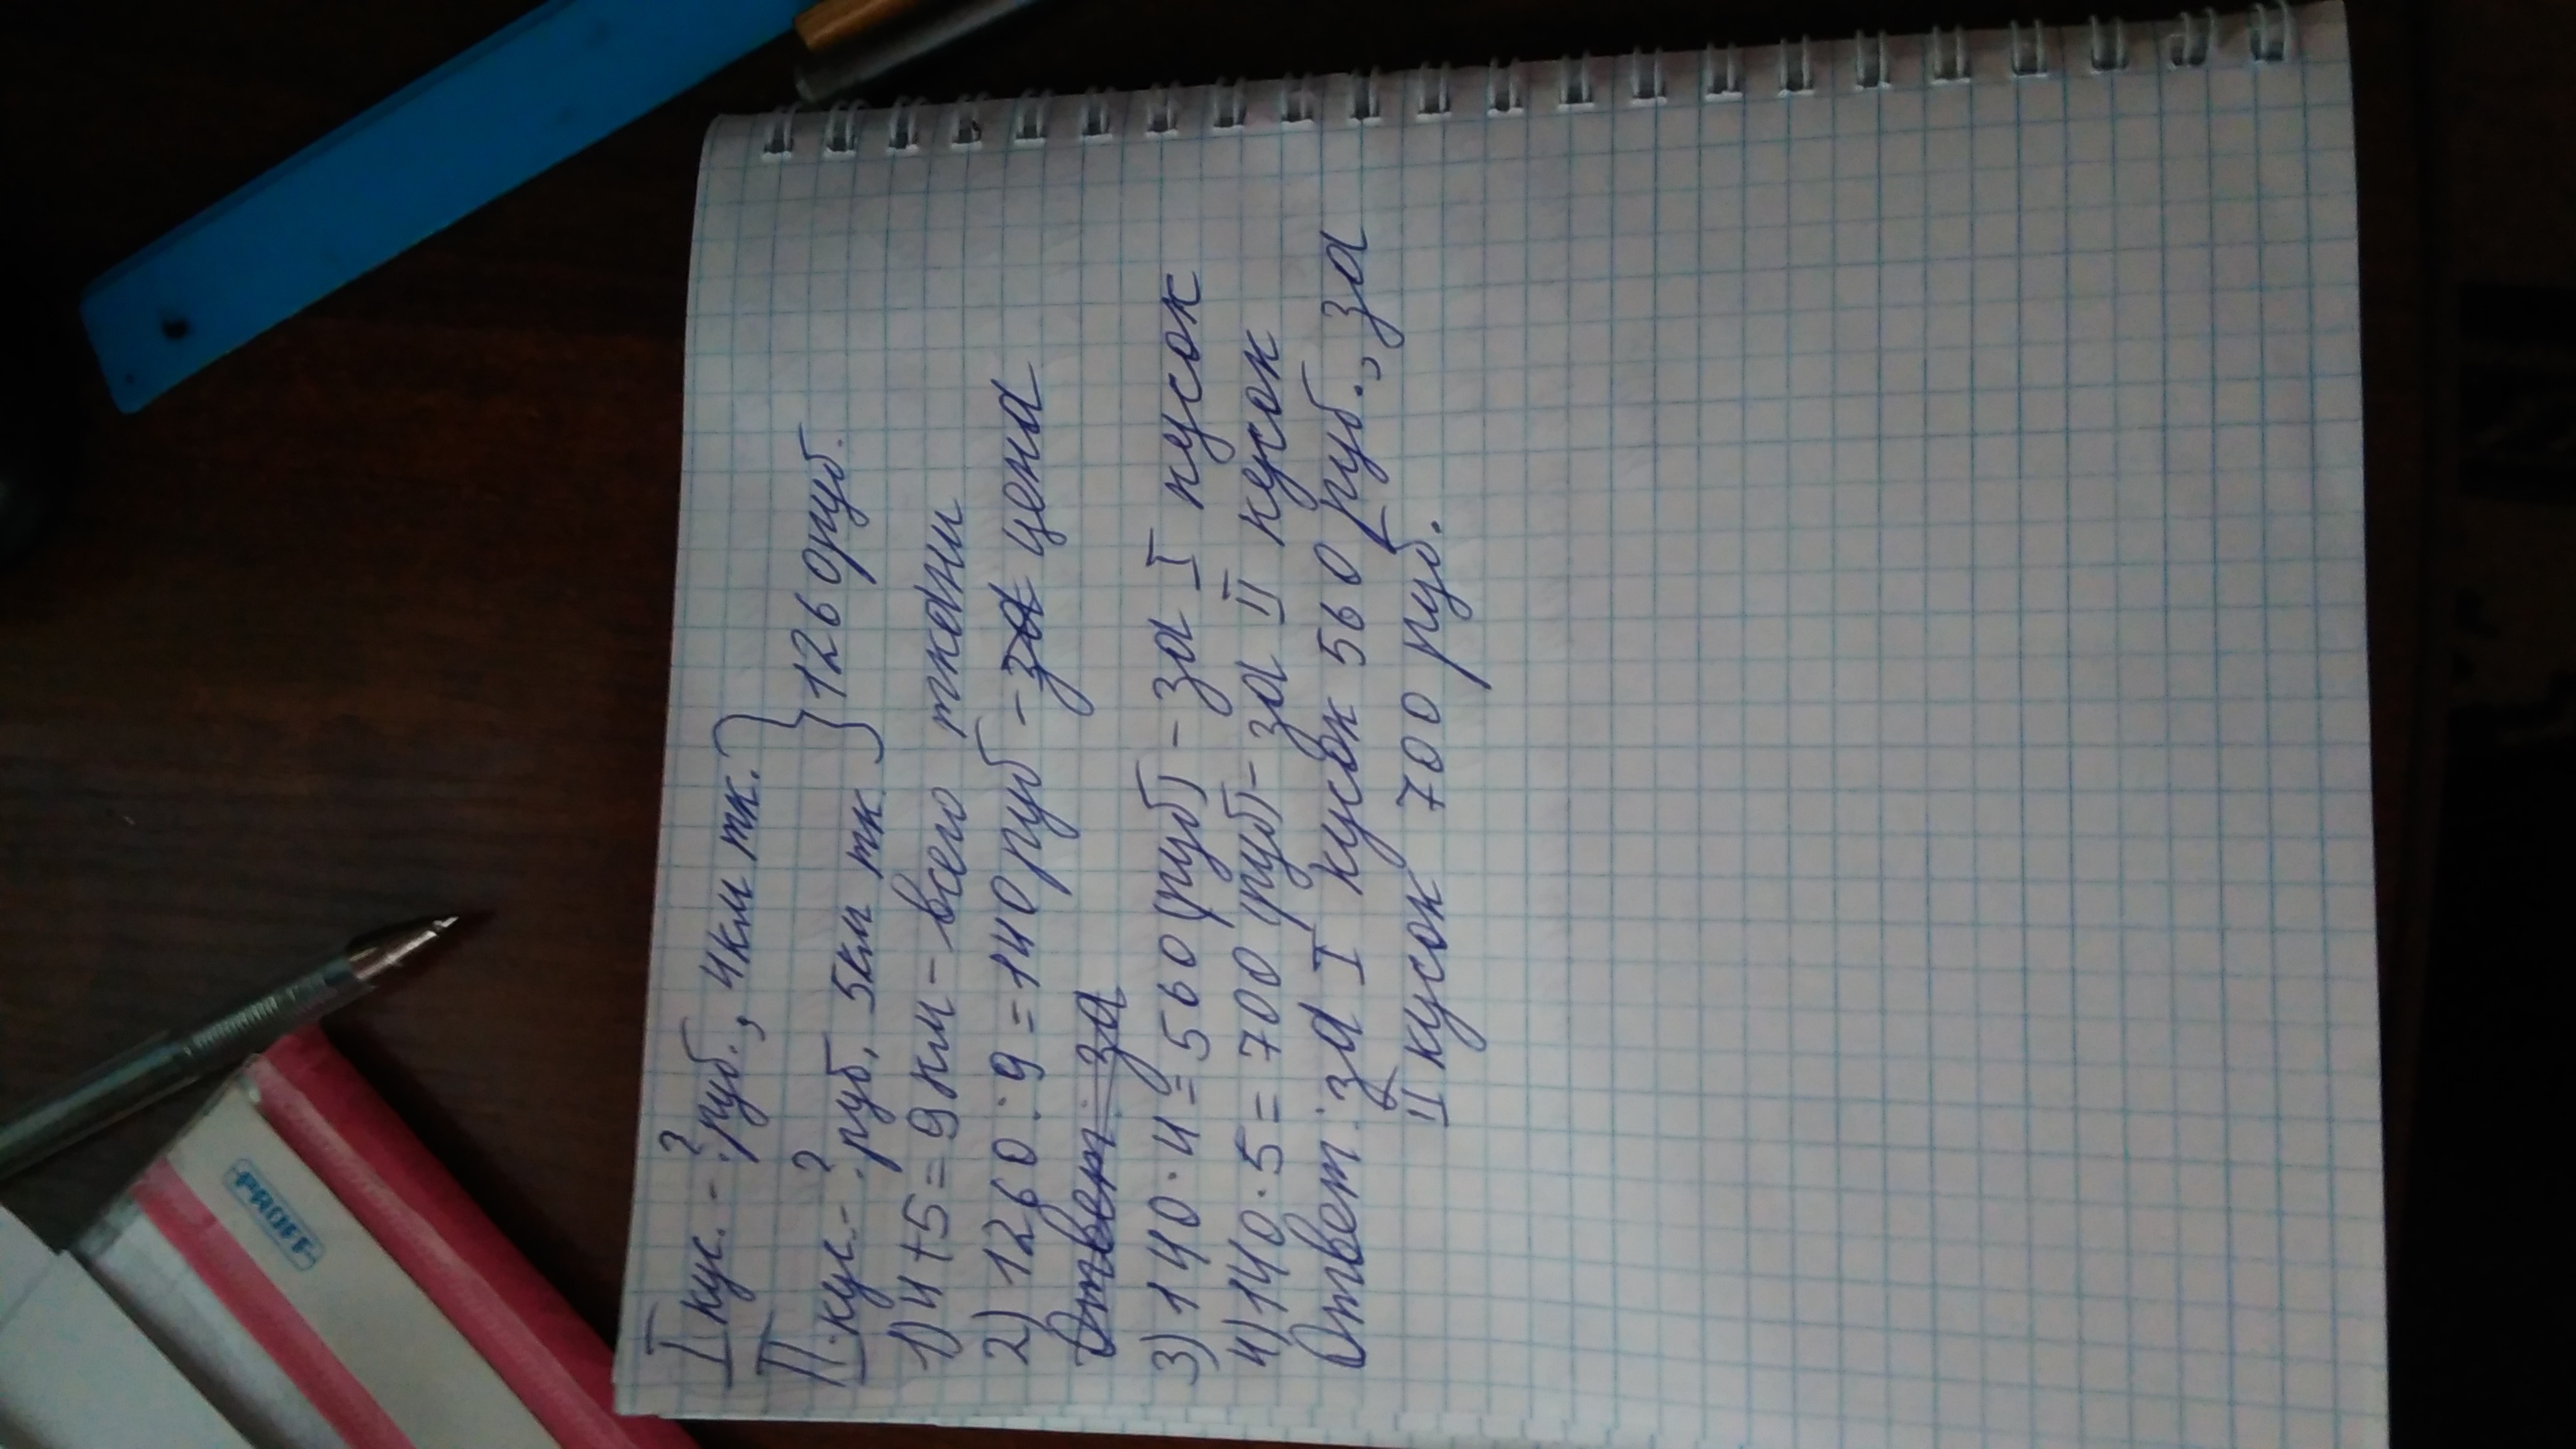 I кус. - ? руб., 4км тк. } 1260руб.
II кус. - ? руб, 5км тк.
1) 4+5=9км - всего ткани
2) 1260:9=140руб - за цена
Ответ: за
3) 140·4=560(руб) - за I кусок
4) 140·5=700(руб) - за II кусок
Ответ: за I кусок 560 руб., за
II кусок 700 руб.
PROFF